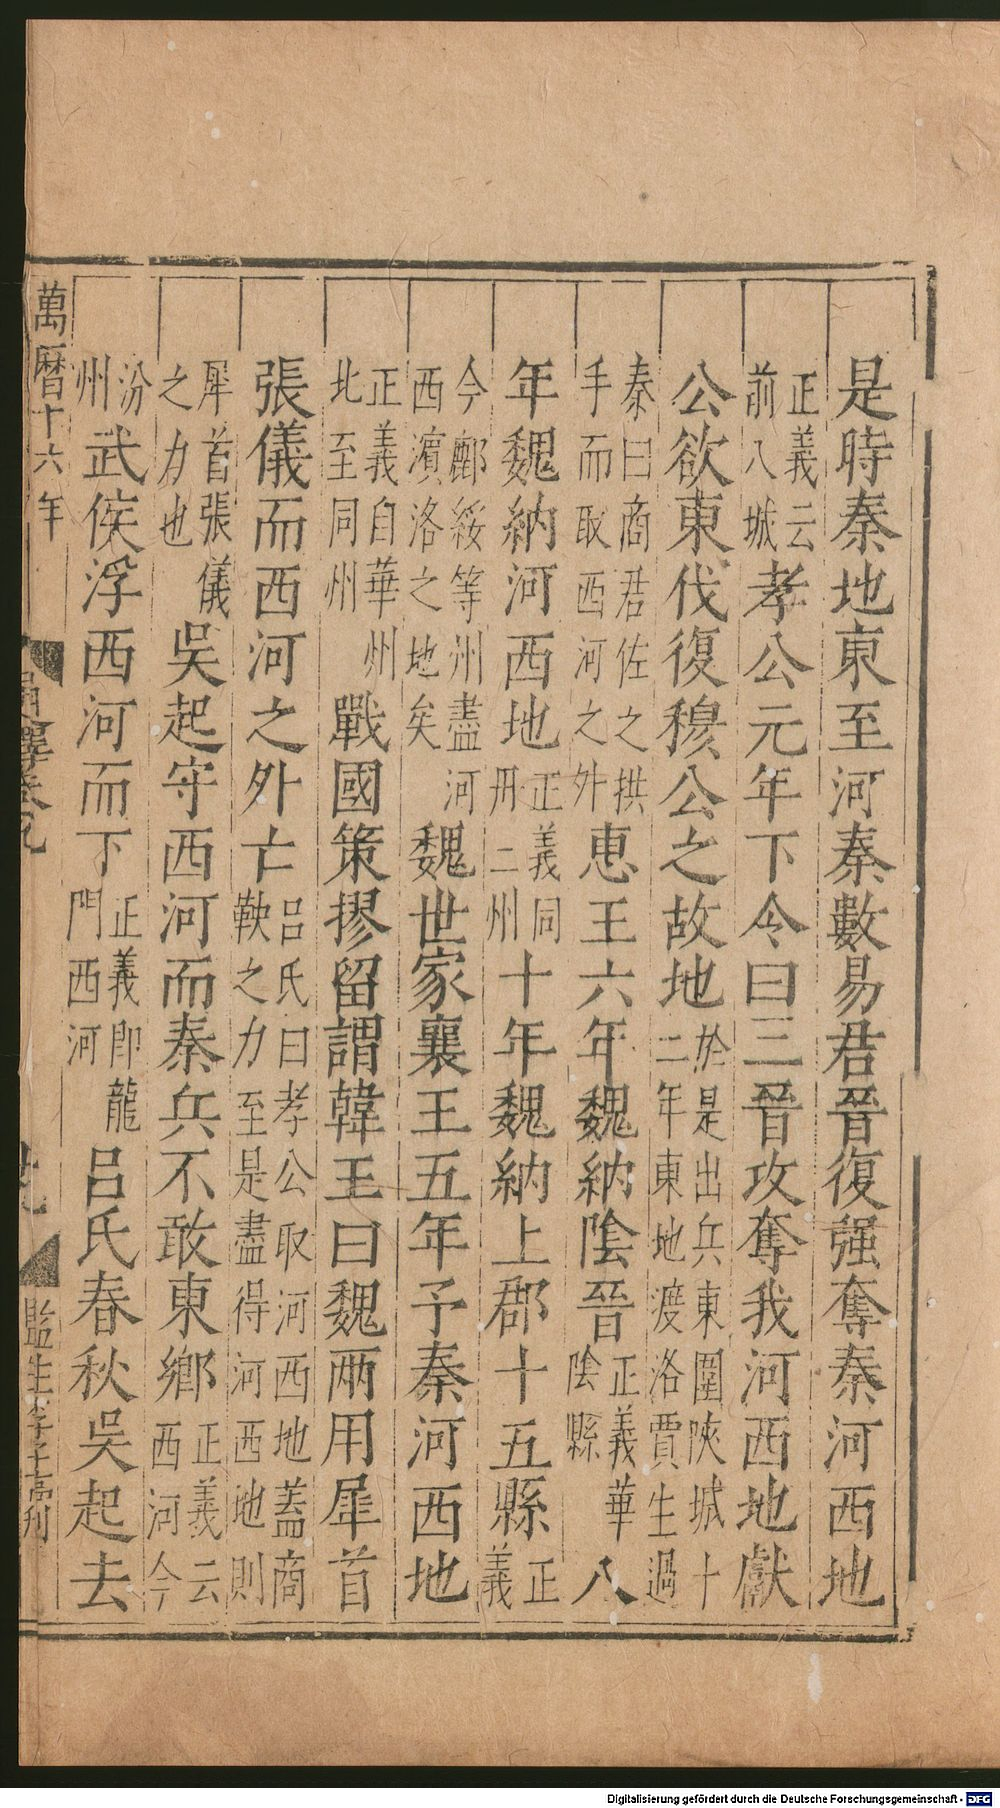 是時秦地東至河秦數易君晉復强奪秦河西地
正義云前八城孝公元年下令曰三晉攻奪我河西地獻
公欲東伐復穆公之故地於是出兵東圍陝城十二年東地渡洛賈生過
秦曰商君佐之拱手而取西河之外恵王六年魏納陰晉正義華陰縣八
年魏納河西地正義同丹二州十年魏納上郡十五縣正義
今鄜綏等州盡河西濵洛之地矣魏世家襄王五年予秦河西地
正義自華州北至同州戰國策摎留謂韓王曰魏兩用犀首
張儀而西河之外亡吕氏曰孝公取河西地蓋商鞅之力至是盡得河西地則
犀首張儀之力也吳起守西河而秦兵不敢東鄉正義云西河今
汾州武侯浮西河而下正義即龍門西河吕氏春秋吳起去
萬曆十六年
通釋卷九
監生李
Digitalisierung gefördert durch die Deutsche Forschungsgemeinschaft - DFG